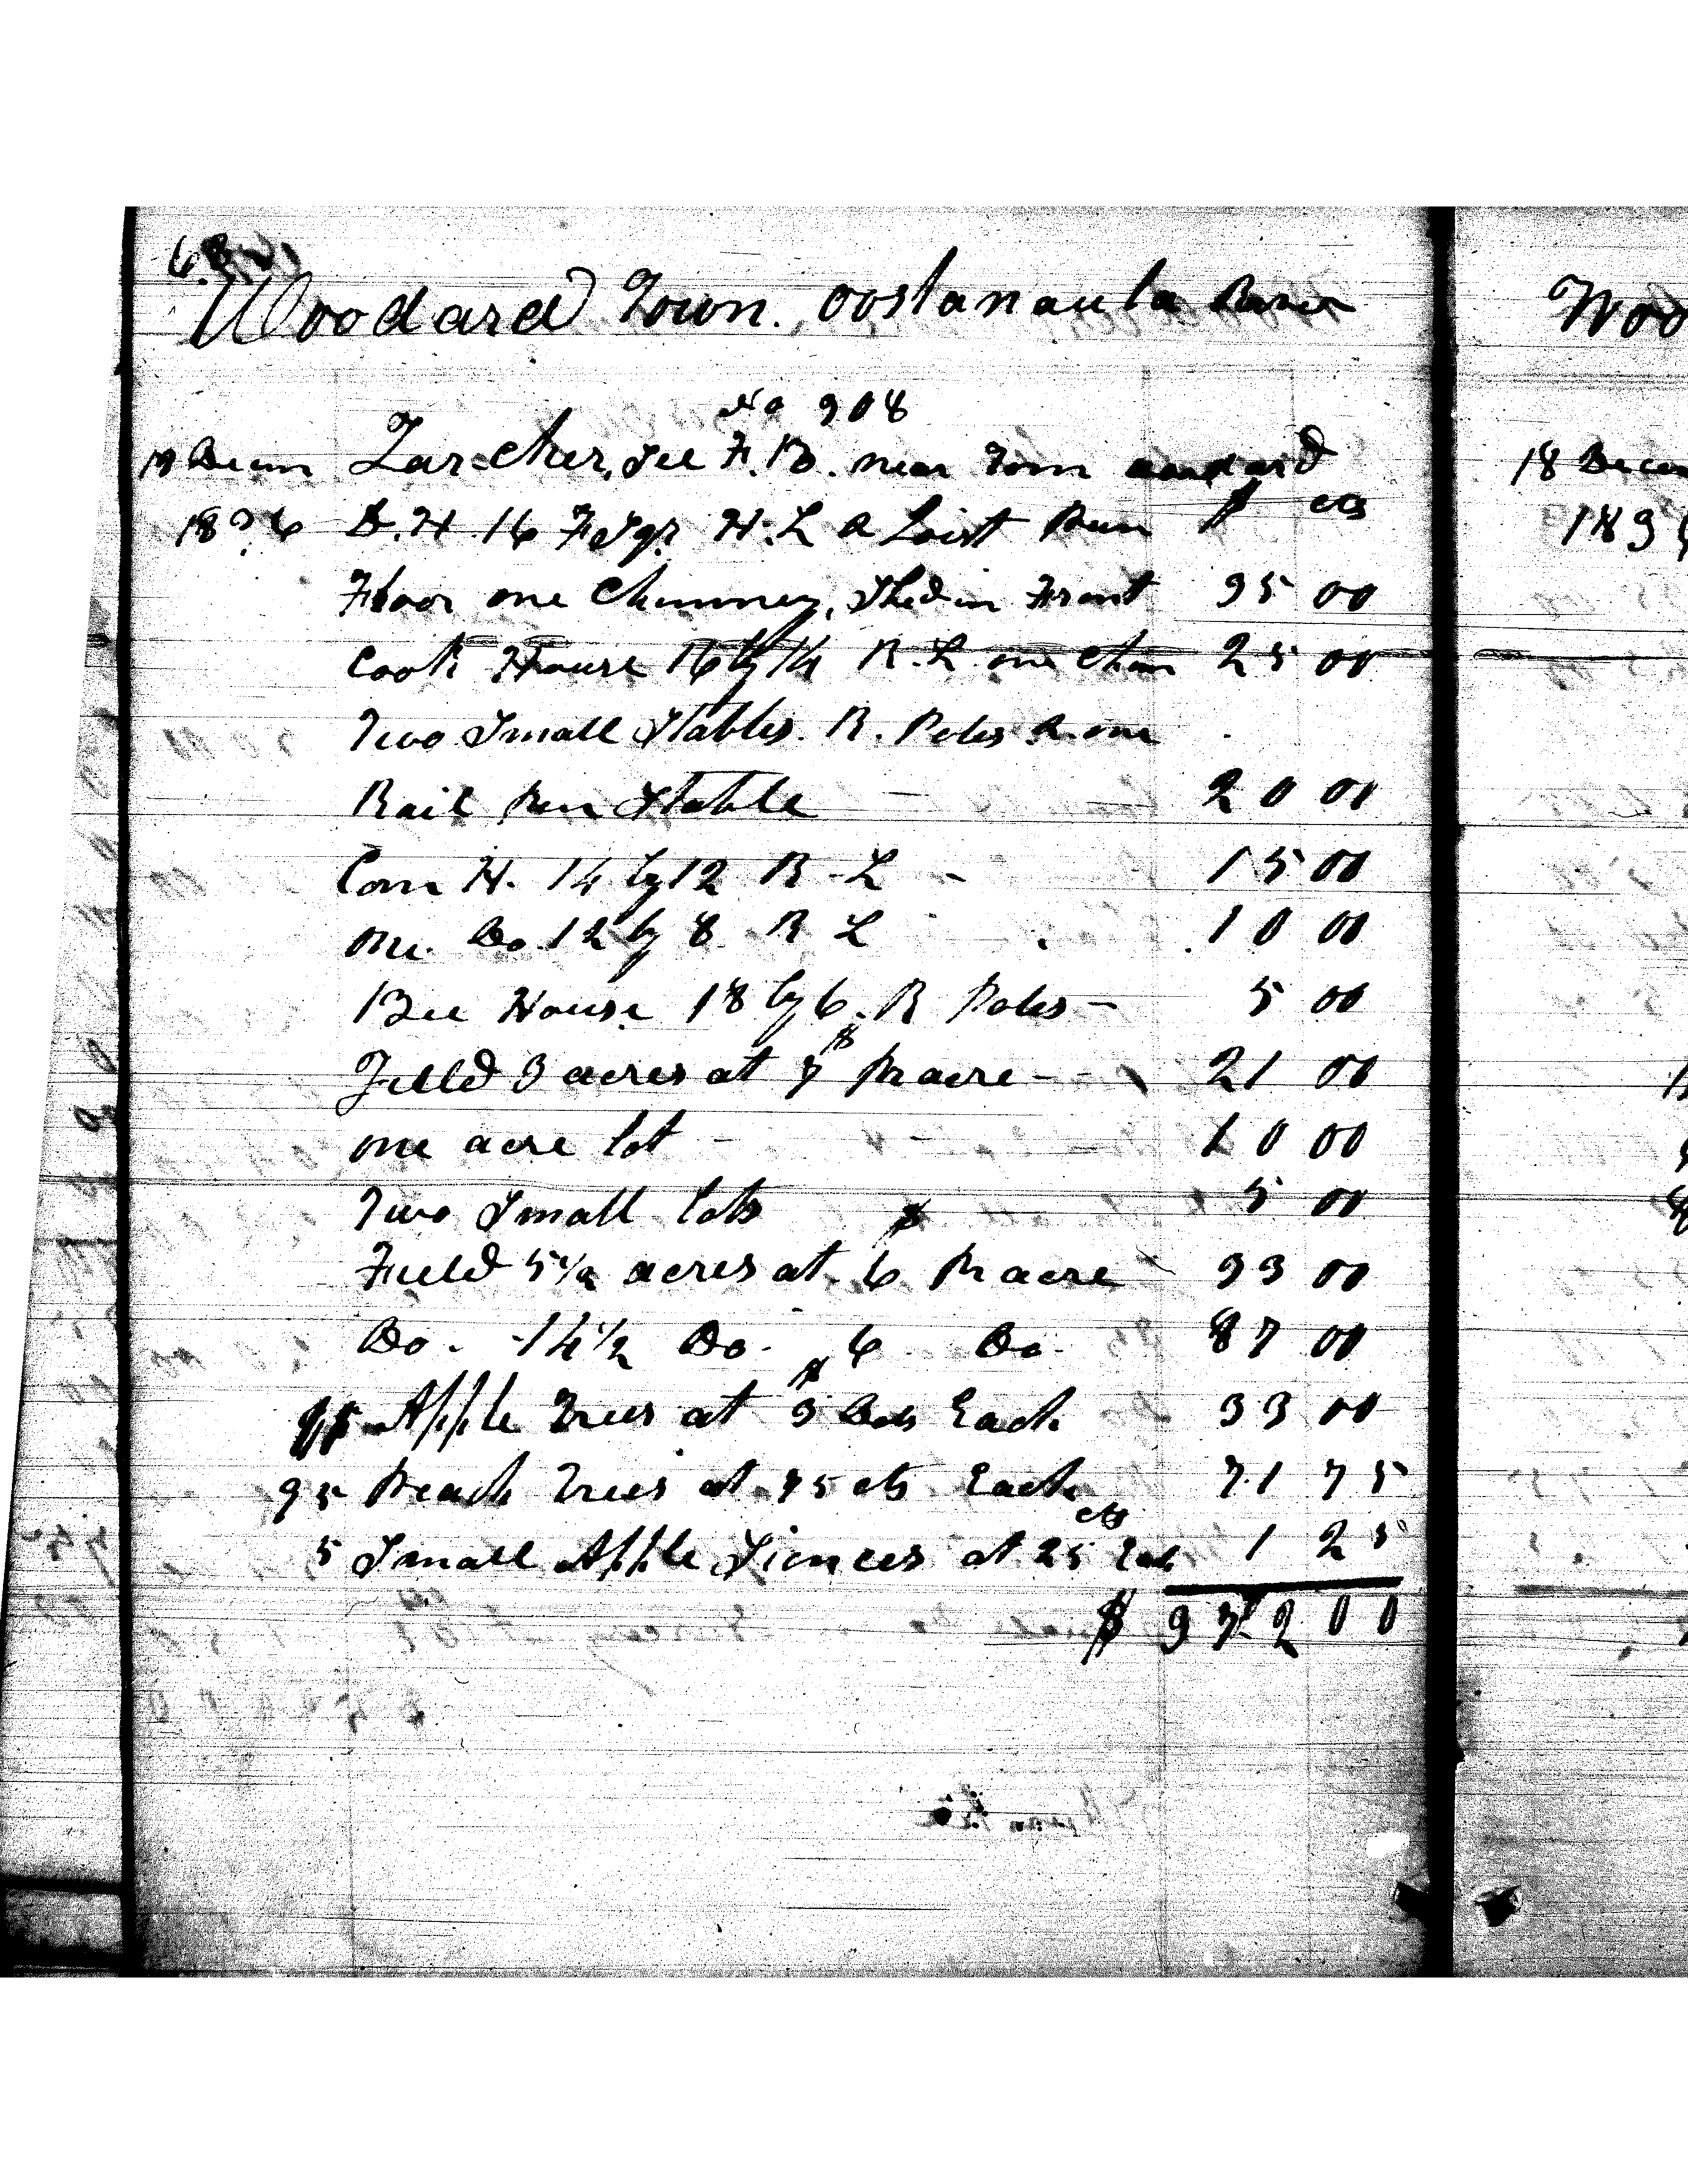 68
Woodard Town. Oostanaula River
No 308
19 Decem Zar-cher, see F.B. near Tom
1836 D.H 16 F Sqr H.L a Loist Pun $ cts
Floor one Chimney, Shed in Front 35 00
Cook House 16 by 14 R.L one Chim 25 00
Two Small Stables. R. Poles & one
Rail Pen Stable 20 00
Corn H. 14 by 12 R-L - 15 00
one Do 12 by 8 R L 10 00
Bee House 18 by 6. R Poles - 5 00
Field 3 acres at 7$ Pr acre - - 21 00
one acre lot - - 10 00
Two Small lots 5 00
Field 5 1/2 acres at 6$ Pr acre 33 00
Do. 14 1/2 Do. 6 Do. 87 00
Apple Trees at $3 Each 33 00
95 Peach Trees at 75 cts Each 71 75
5 Small Apple Siences at 25 cts Each 1 25
$ 372 00
Woo
18 Decem
183